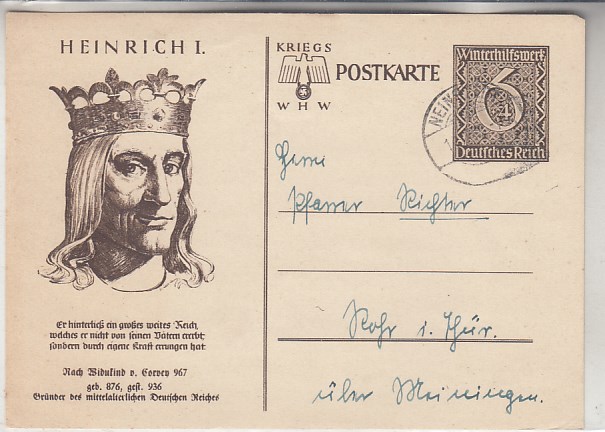 HEINRICH I.
Er hinterließ ein großes weites Reich,
welches er nicht von seinen Vätern ererbt;
sondern durch eigene Kraft errungen hat.
Nach Widukind v. Corvey 967
geb. 876, gest. 936
Gründer des mittelalterlichen Deutschen Reiches
KRIEGS
WHW
POSTKARTE
Winterhilfswerk
6
4
Deutsches Reich
Herrn
Pfarrer Richter
Rohr i. Thür.
über Meiningen.